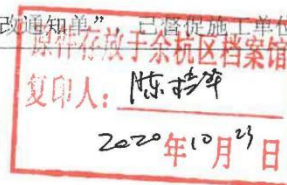 改通知单”，已督促施工单位
原件存放于余杭区档案馆
复印人：陈
2020年10月23日